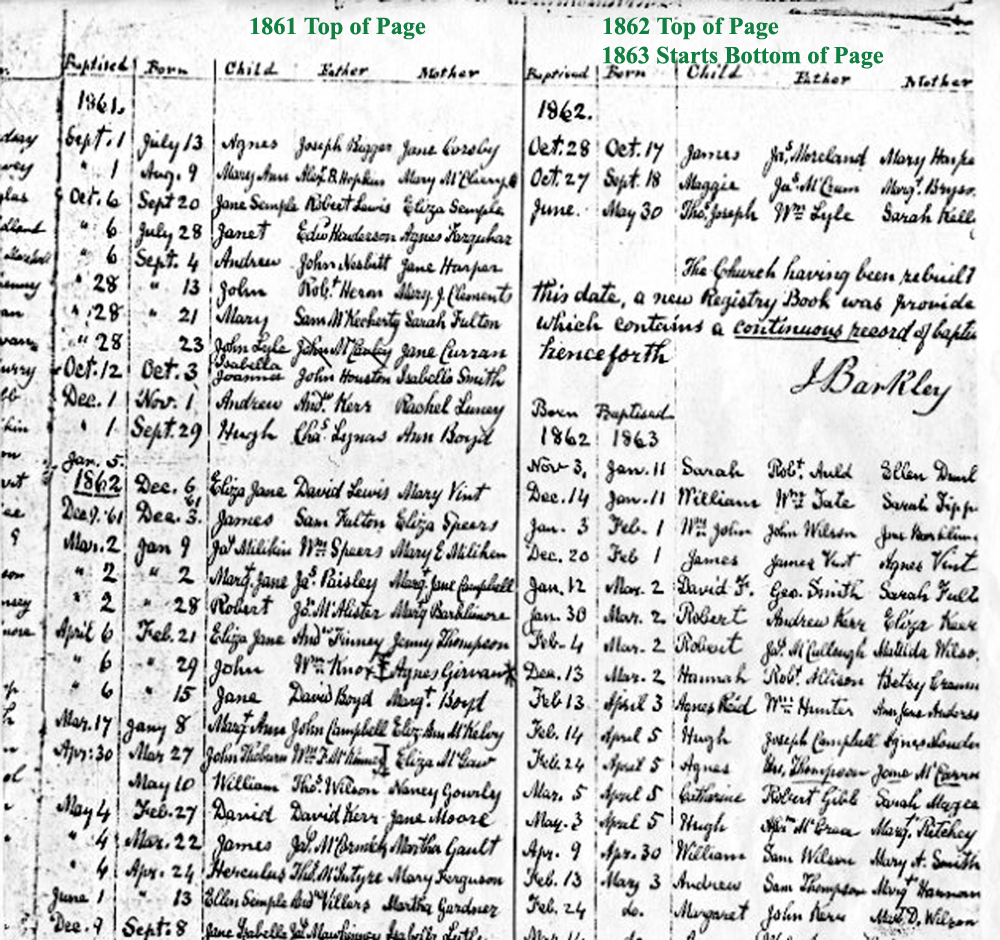 1861 Top of Page
Baptised Born Child Father Mother
1861.
Sept. 1 July 13 Agnes Joseph Bigger Jane Corsby
" 1 Aug. 9 Mary Ann Alexr. B. Hopkins Mary
Oct. 6 Sept 20 Jane Semple Robert Lewis Eliza Semple
" 6 July 28 Janet Edwd Henderson Agnes Farquhar
" 6 Sept. 4 Andrew John Nesbitt Jane Harper
" 28 " 13 John Robt. Heron Mary J. Clements
" 28 " 21 Mary Sam McKeekerty Sarah Fulton
" 28 23 John Lyle John McCauley Jane Curran
Oct. 12 Oct. 3 Isabella Joanna John Houston Isabella Smith
Dec. 1 Nov. 1 Andrew Andw. Kerr Rachel Luney
" 1 Sept. 29 Hugh Chas. Lynas Ann Boyd
Jan. 5.
1862 Dec. 6 Eliza Jane David Lewis Mary Vint
Dec 9. '61 Dec. 3. 61 James Sam Fulton Eliza Speers
Mar. 2 Jan 9 Jas. Milikin Wm Speers Mary E Miliken
" 2 " 2 Margt. Jane Jas. Paisley Margt. Jane Campbell
" 2 " 28 Robert Jas. McAlister Margt Barklimore
April 6 Feb. 21 Eliza Jane Andw Finney Jenny Thompson
" 6 " 29 John Wm Knox Agnes Girvan
" 6 " 15 Jane David Boyd Margt. Boyd
Mar. 17 Jany 8 Margt. Ann John Campbell Eliz. Ann McKelvy
Apr: 30 Mar 27 John Thoburn Wm F. McKinney Eliza McGaw
May 10 William Thos. Wilson Nancy Gourly
May 4 Feb. 27 David David Kerr Jane Moore
" 4 Mar. 22 James Jas. McCormick Martha Gault
" 4 Apr. 24 Herculus Thos. McIntyre Mary Ferguson
June 1 " 13 Ellen Semple Andw Villers Martha Gardner
Dec. 9 Sept. 8 Jane Isabella Jas. Mawhinney Isabella
1862 Top of Page
1863 Starts Bottom of Page
Baptised Born Child Father Mother
1862.
Oct. 28 Oct. 17 James Jas. Moreland Mary Harpe
Oct. 27 Sept. 18 Maggie Jas. McCrum Margt. Bryso
June. May 30 Thos. Joseph Wm Lyle Sarah Kell
The Church having been rebuilt
this date, a new Registry Book was provide
which contains a continuous record of bapti
henceforth
J Barkley
Born Baptised
1862 1863
Nov 3, Jan. 11 Sarah Robt. Auld Ellen Dunl
Dec. 14 Jan. 11 William Wm Tate Sarah Tipp
Jan. 3 Feb. 1 Wm John John Wilson Jane
Dec. 20 Feb 1 James James Vint Agnes Vint
Jan. 12 Mar. 2 David F. Geo. Smith Sarah Fult
Jan. 30 Mar. 2 Robert Andrew Kerr Eliza Kerr
Feb. 4 Mar. 2 Robert Jas. McCullough Matilda Wilso
Dec. 13 Mar. 2 Hannah Robt. Allison Betsy
Feb 13 April 3 Agnes Reid Wm Hunter Ann Jane Andrew
Feb. 14 April 5 Hugh Joseph Campbell Agnes
Feb. 24 April 5 Agnes Thompson Jane
Mar. 5 April 5 Catharine Robert Gibb Sarah Magea
May. 3 April 5 Hugh McCrea Margt. Ritchey
Apr. 9 Apr. 30 William Sam Wilson Mary A. Smith
Feb. 13 May 3 Andrew Sam Thompson Margt Hannon
Feb. 24 do. Margaret John Kerr D. Wilson